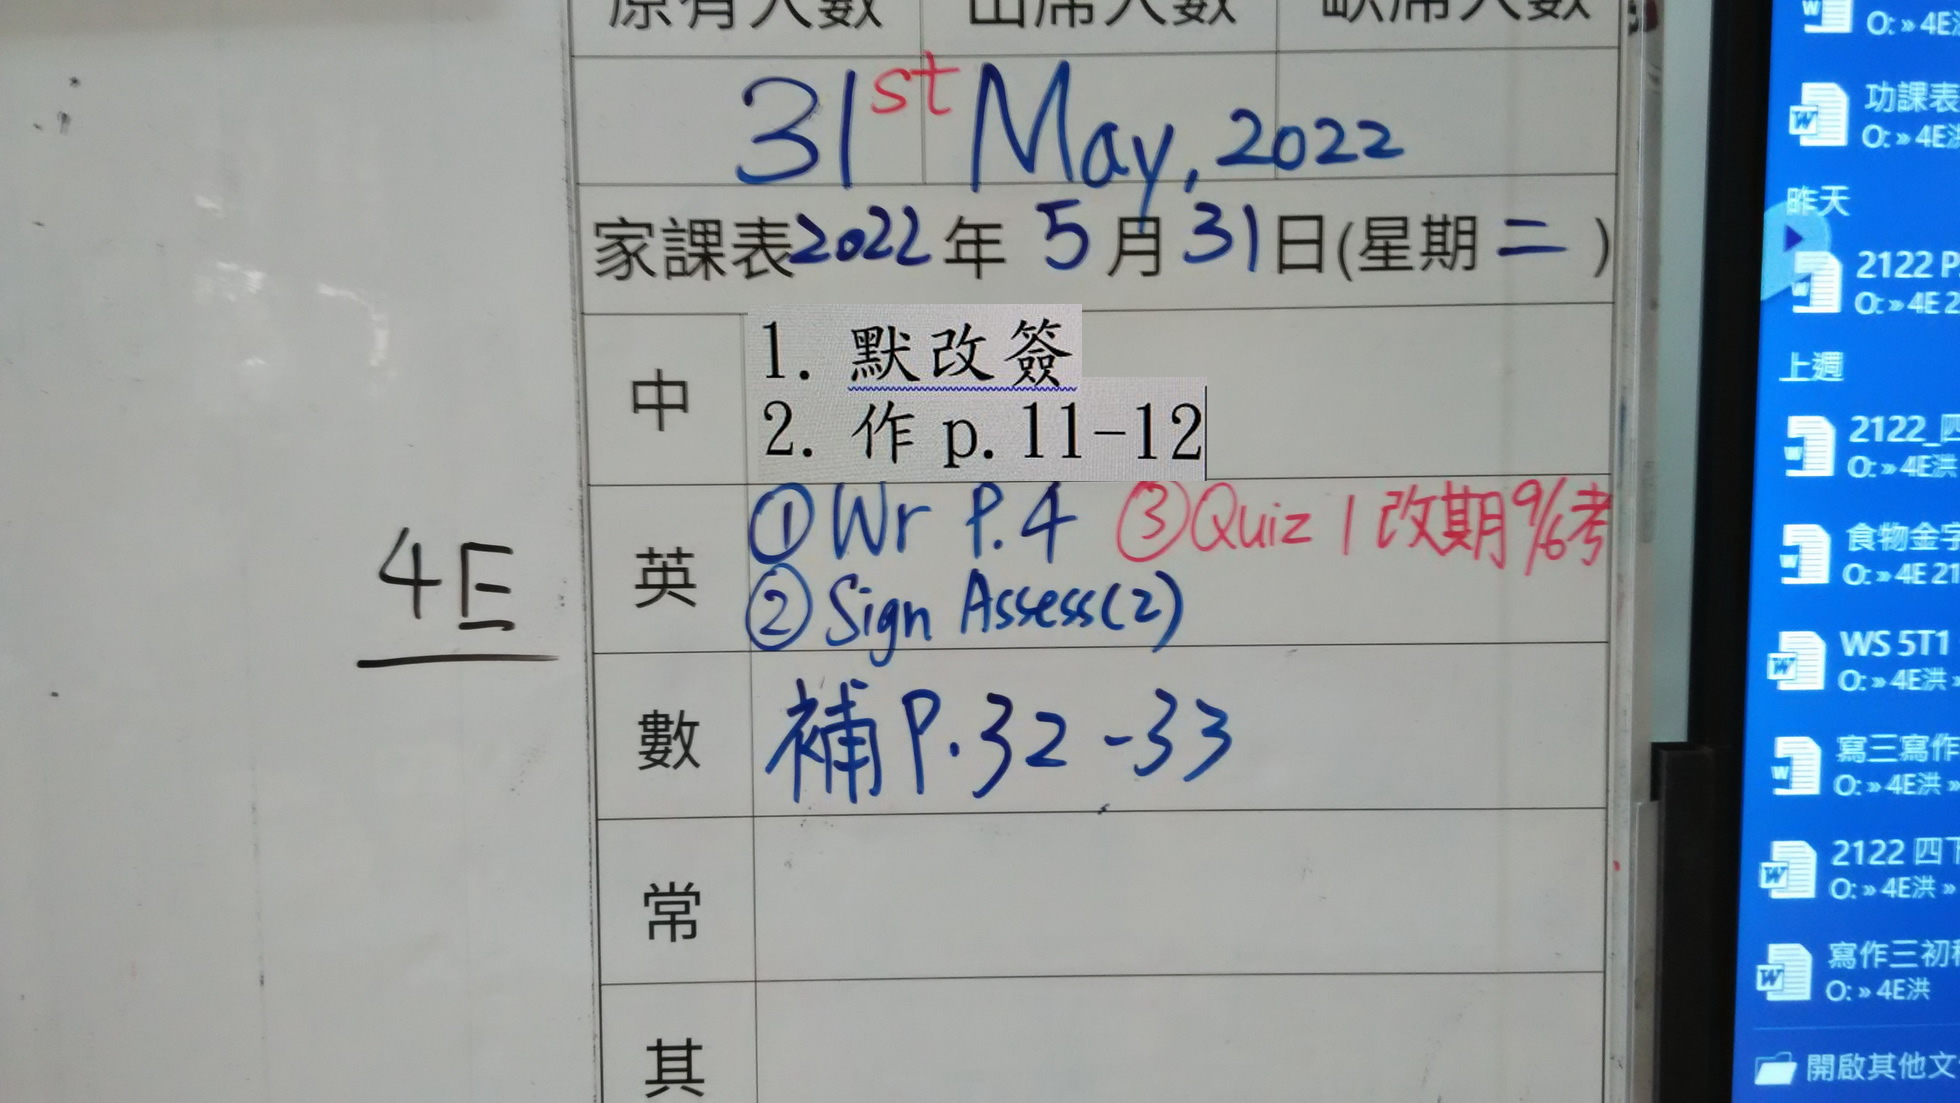 原有人數 出席人數 缺席人數
31st May, 2022
家課表2022年 5月31日(星期二)
中
1. 默改簽
2. 作 p.11-12
英
①Wr P.4 ③Quiz 1 改期9/6考
②Sign Assess(2)
數
補 P.32-33
常
其
4E
O: » 4E洪
功課表
O: » 4E洪
昨天
2122 P
O: » 4E 2
上週
2122_四
O: » 4E洪
食物金字
O: » 4E 21
WS 5T1
O: » 4E洪 »
寫三寫作
O: » 4E洪 »
2122 四下
O: » 4E洪 »
寫作三初稿
O: » 4E洪
開啟其他文